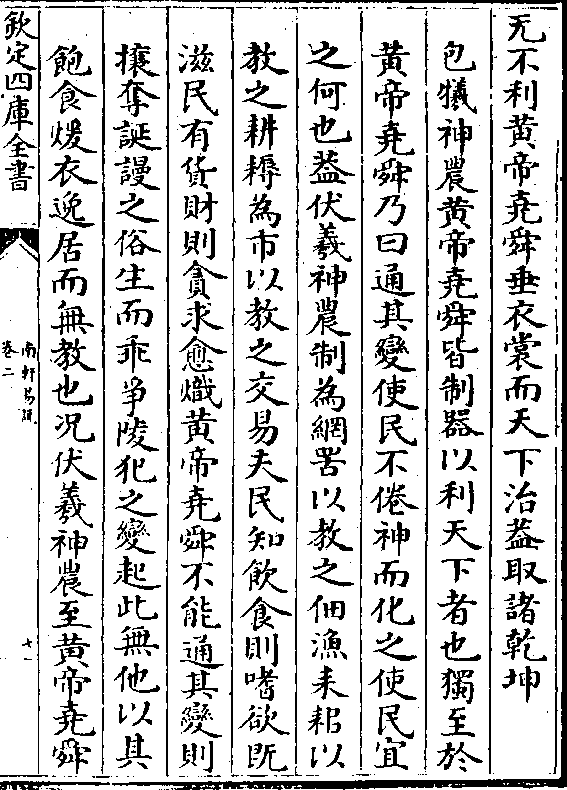 无不利黄帝堯舜垂衣裳而天下治葢取諸乾坤
包犧神農黄帝堯舜皆制器以利天下者也獨至於
黄帝堯舜乃曰通其變使民不倦神而化之使民宜
之何也葢伏羲神農制為網罟以教之佃漁耒耜以
教之耕耨為市以教之交易夫民知飲食則嗜欲既
滋民有貨財則貪求愈熾黄帝堯舜不能通其變則
攘奪誕謾之俗生而乖爭陵犯之變起此無他以其
飽食煖衣逸居而無教也况伏羲神農至黄帝堯舜
欽定四庫全書
南軒易說
卷二
七